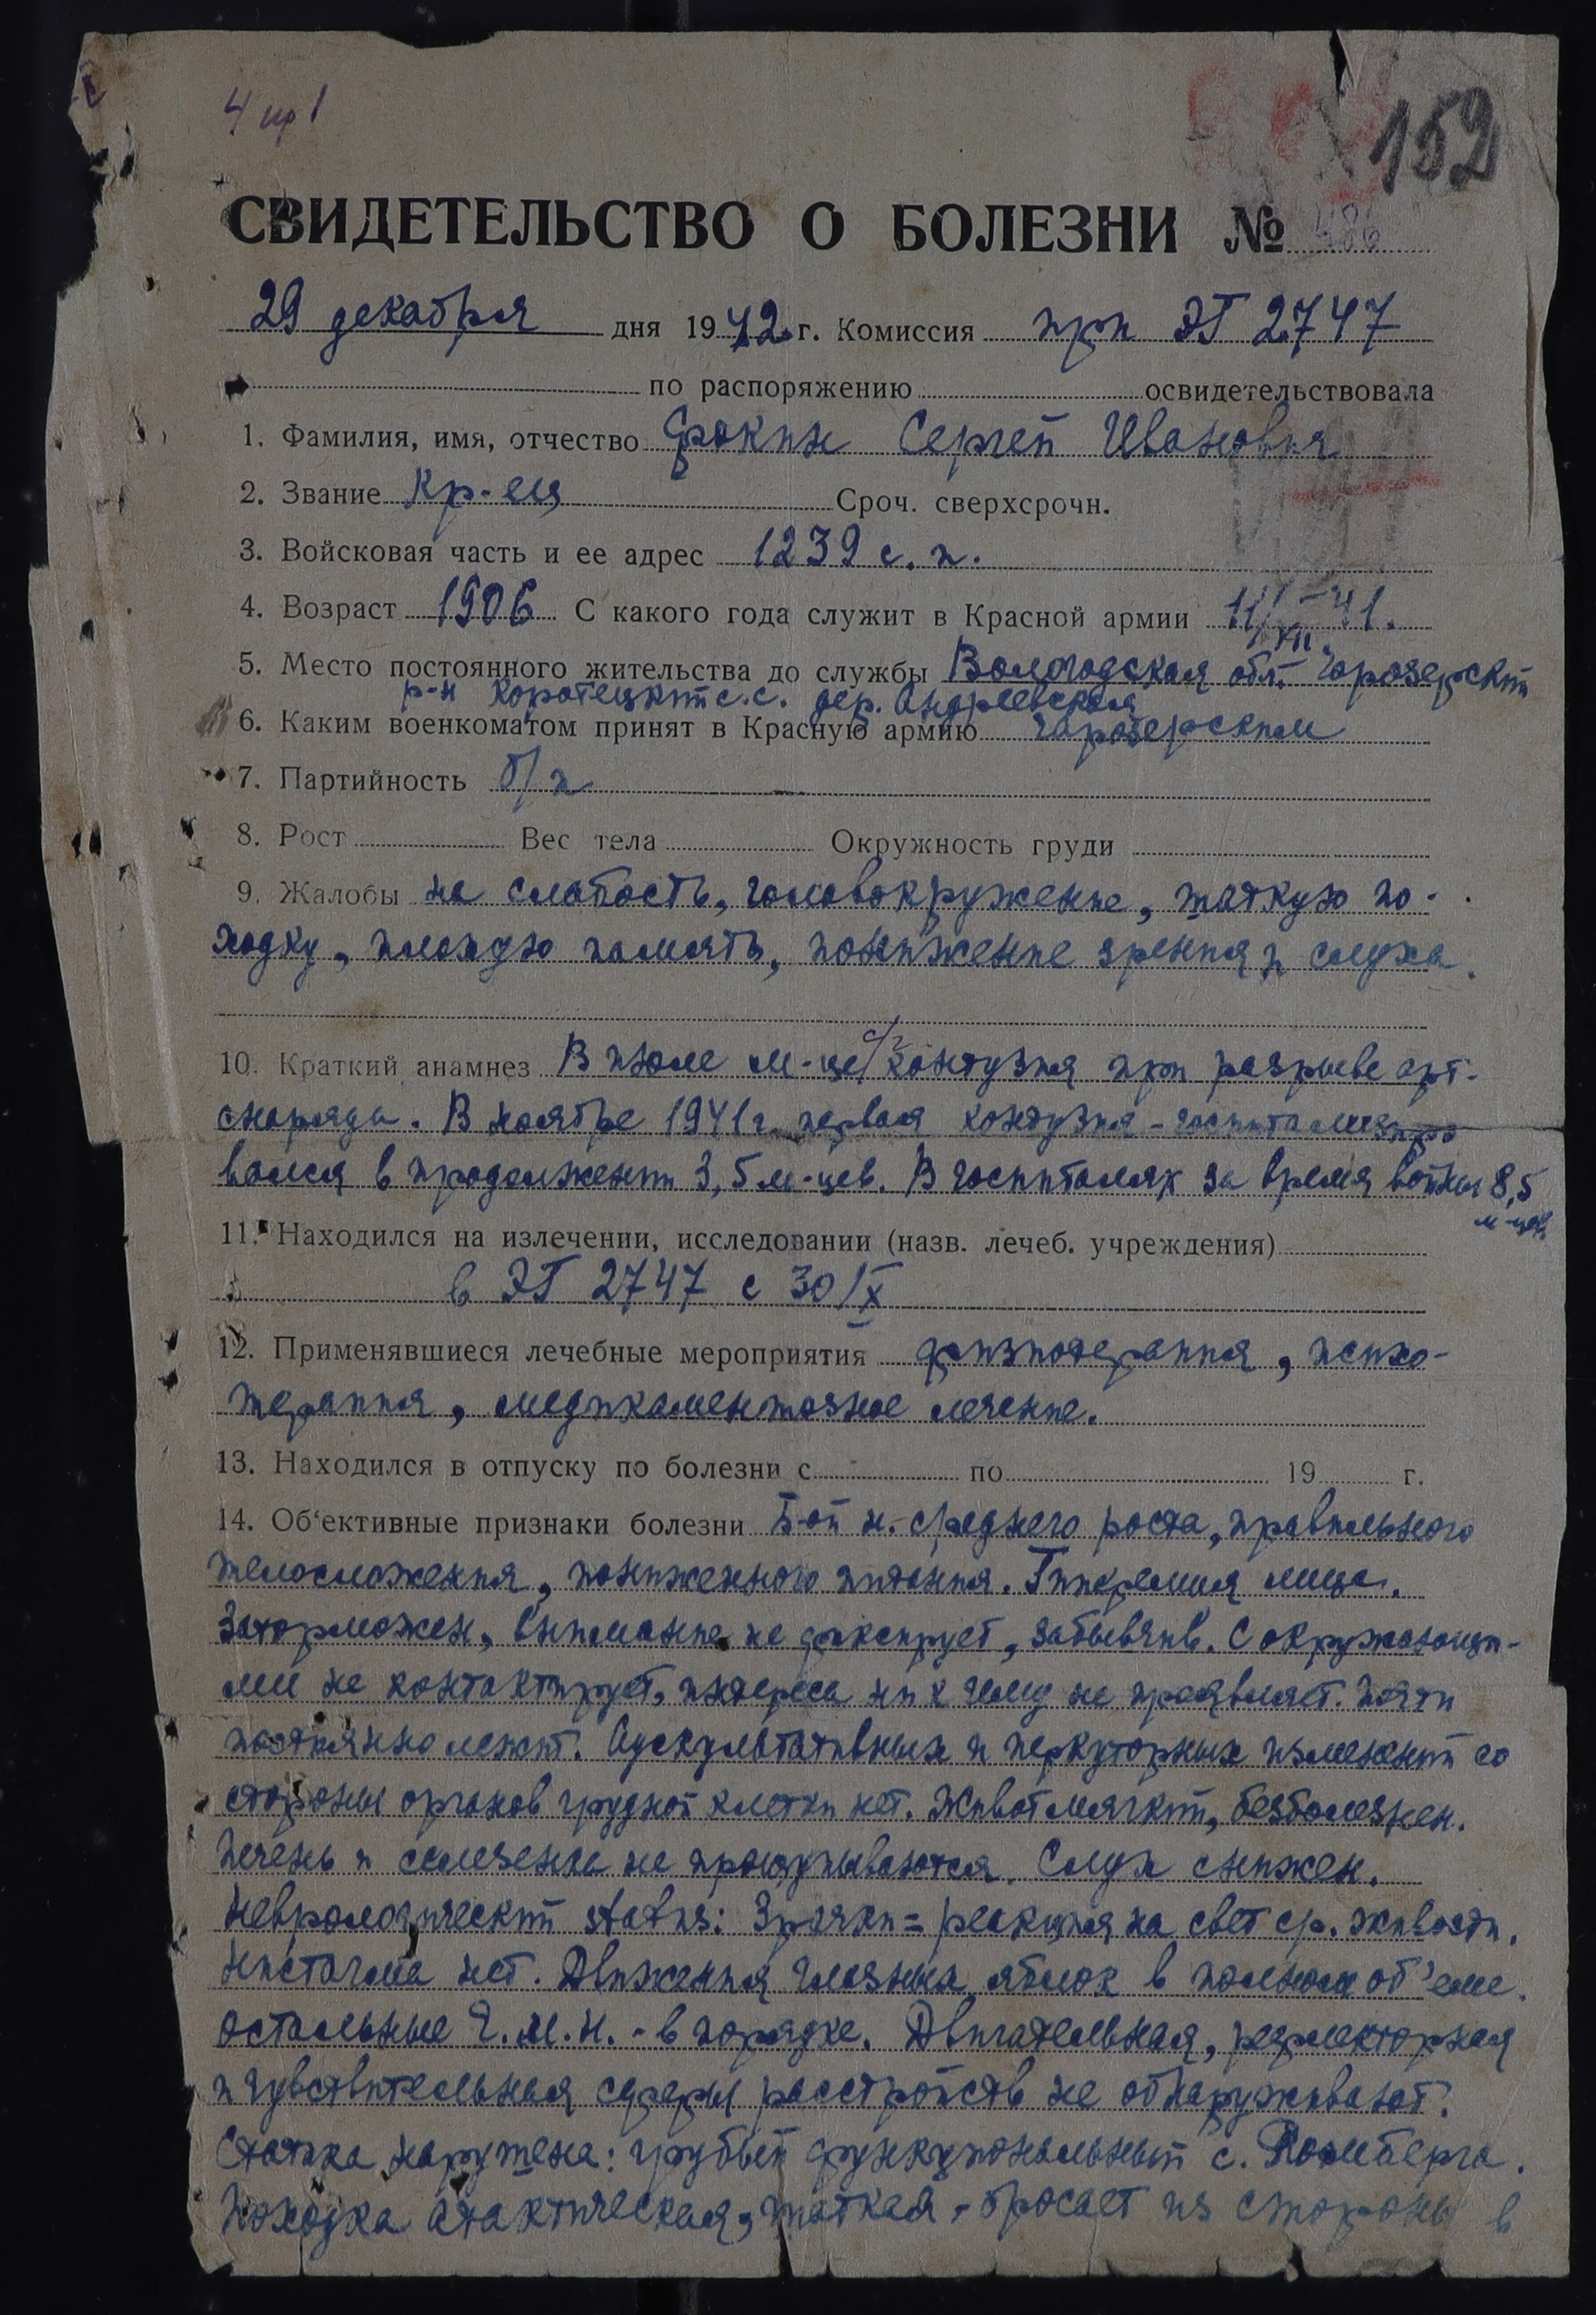 4 пр 1
152
СВИДЕТЕЛЬСТВО О БОЛЕЗНИ № 486
29 декабря дня 1942 г. Комиссия при ЭГ 2747
по распоряжению освидетельствовала
1. Фамилия, имя, отчество Фокин Сергей Иванович
2. Звание Кр-ец Сроч. сверхсрочн.
3. Войсковая часть и ее адрес 1239 с.п.
4. Возраст 1906 С какого года служит в Красной армии 11/XII-41.
5. Место постоянного жительства до службы Вологодская обл. Чарозерский
р-н Коротецкий с.с. дер. Андреевская
6. Каким военкоматом принят в Красную армию Чарозерским
7. Партийность б/п
8. Рост Вес тела Окружность груди
9. Жалобы на слабость, головокружение, шаткую по-
ходку, плохую память, понижение зрения и слуха.
10. Краткий анамнез В июле м-це с/г контузия при разрыве арт-
снаряда. В ноябре 1941 г. первая контузия - госпитализиро
вался в продолжении 3,5 м-цев. В госпиталях за время войны 8,5
м-цев
11. Находился на излечении, исследовании (назв. лечеб. учреждения)
в ЭГ 2747 с 30/X
12. Применявшиеся лечебные мероприятия физиотерапия, психо-
терапия, медикаментозное лечение.
13. Находился в отпуску по болезни с по 19 г.
14. Об'ективные признаки болезни Б-ой н. среднего роста, правильного
телосложения, пониженного питания. Гиперемия лица.
Заторможен, внимание не фиксирует, забывчив. С окружающи-
ми не контактирует, интереса ни к чему не проявляет. Почти
постоянно лежит. Аускультативных и перкуторных изменений со
стороны органов грудной клетки нет. Живот мягкий, безболезнен.
Печень и селезенка не прощупываются. Слух снижен.
Неврологический status: Зрачки = реакция на свет ср. живости.
Нистагма нет. Движения глазных яблок в полном об'еме.
Остальные Ч.М.Н. - в порядке. Двигательная, рефлекторная
и чувствительная сферы расстройств не обнаруживают.
Статика нарушена: грубый функциональный с. Ромберга.
Походка атактическая, шаткая - бросает из стороны в